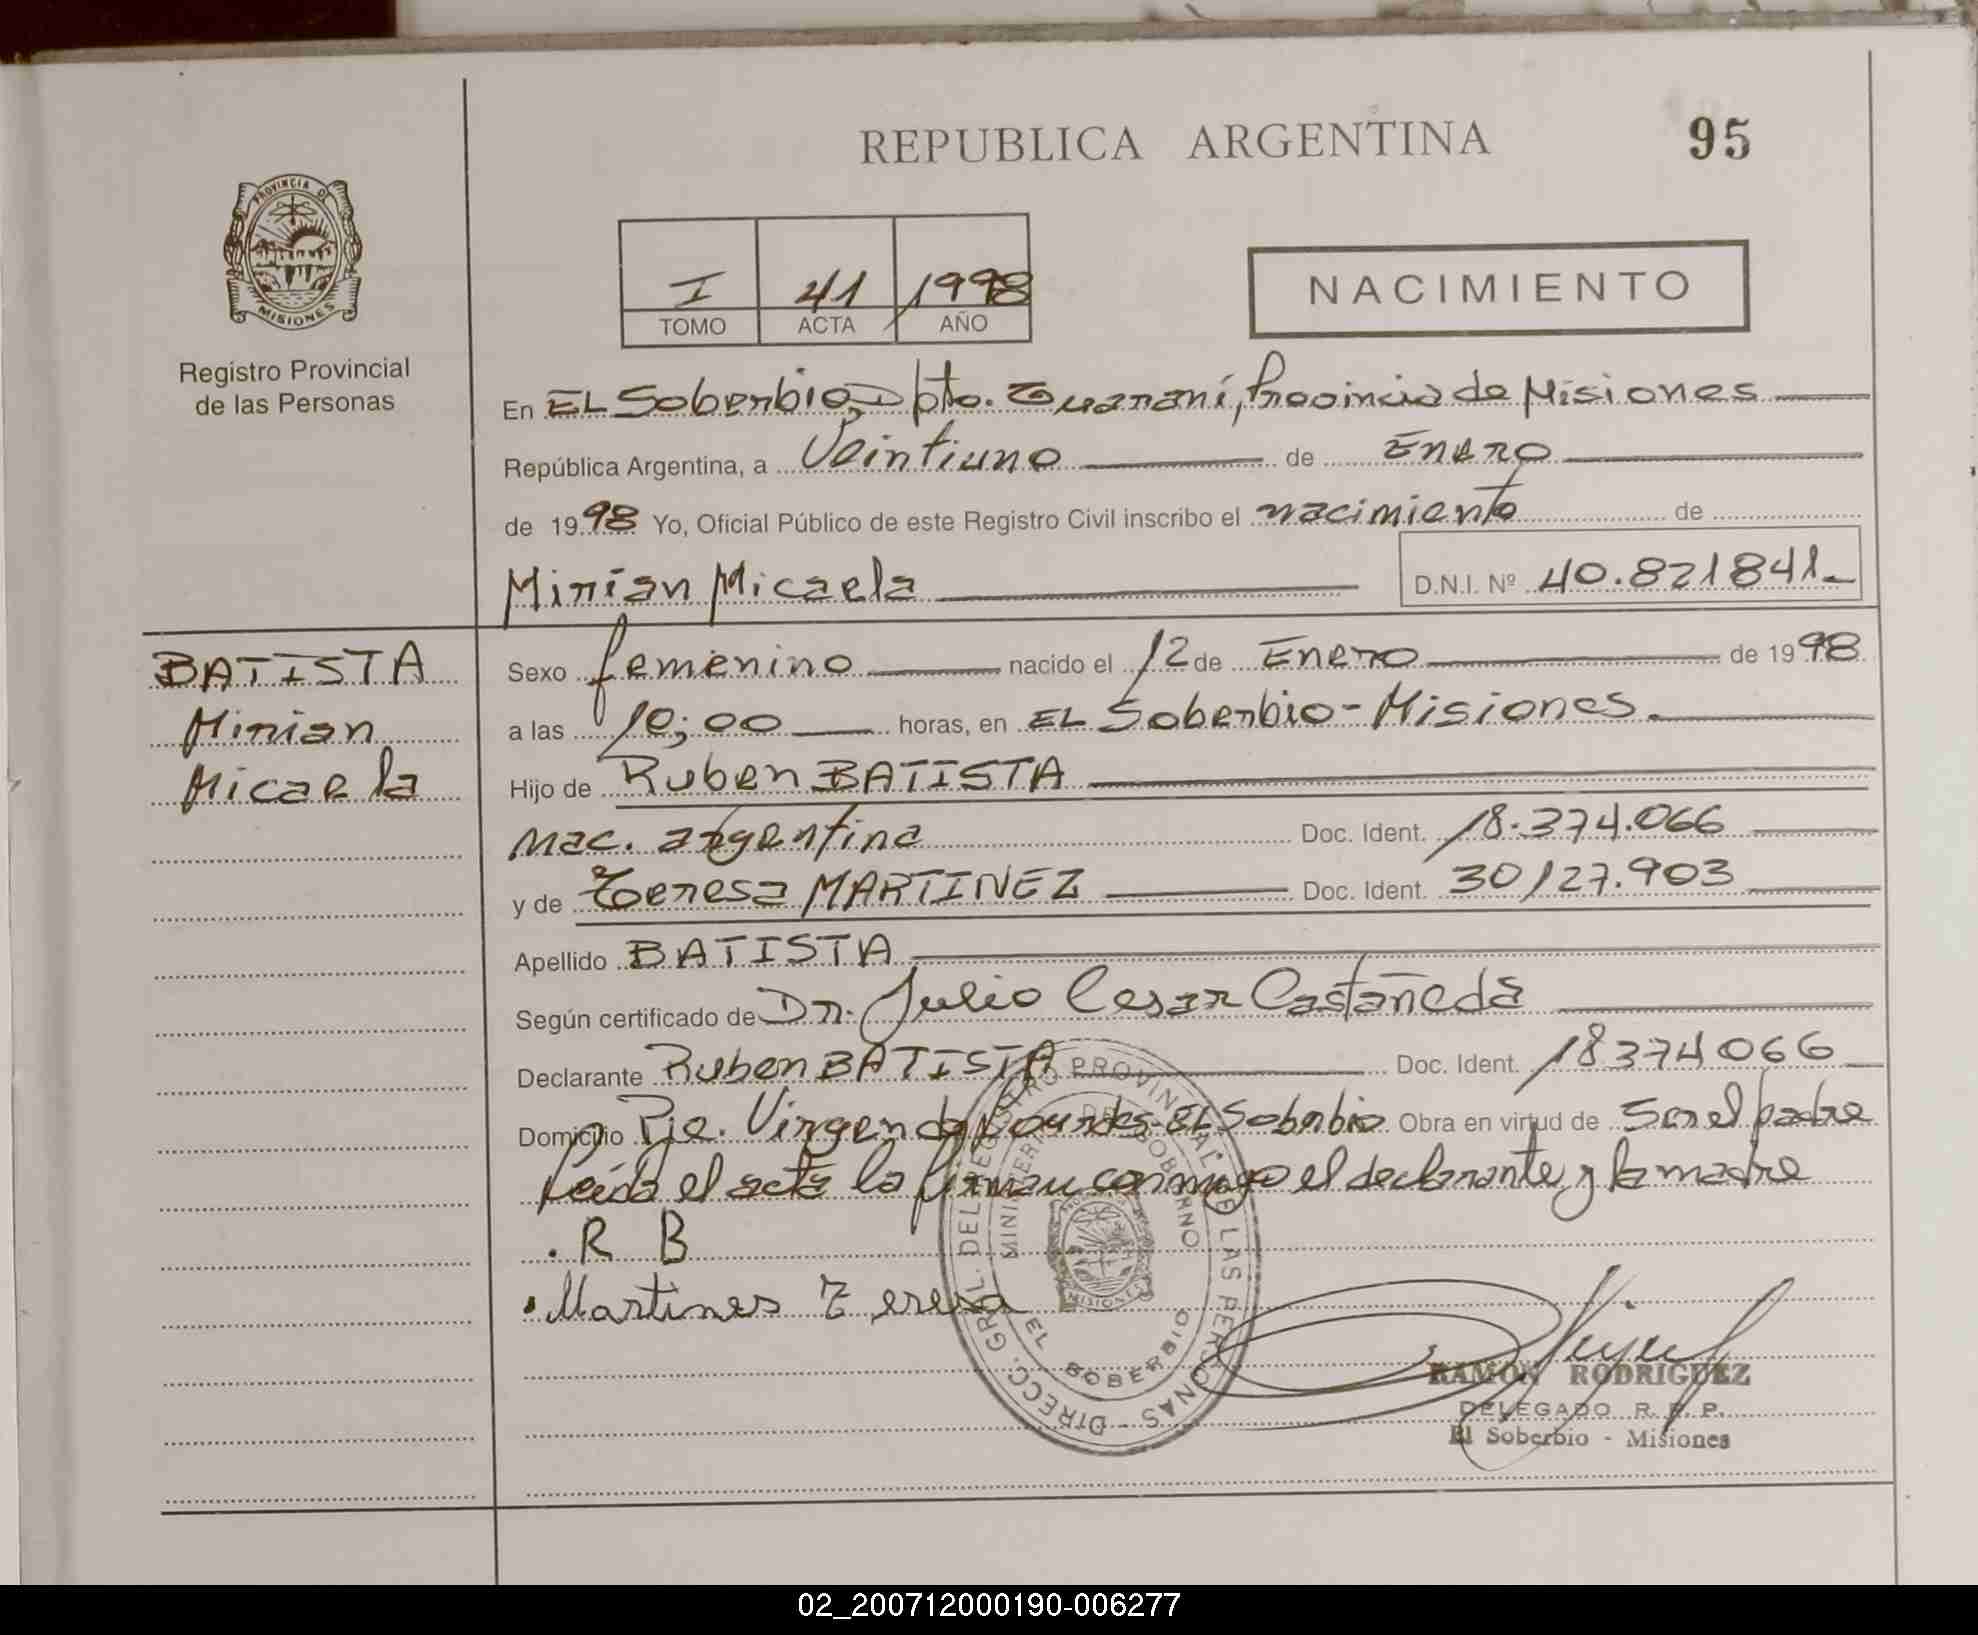 REPUBLICA ARGENTINA
95
PROVINCIA DE
MISIONES
Registro Provincial
de las Personas
I 41 1998
TOMO ACTA AÑO
NACIMIENTO
En EL Soberbio, Dpto. Guaraní, Provincia de Misiones
República Argentina, a Veintiuno de Enero
de 1998 Yo, Oficial Público de este Registro Civil inscribo el nacimiento de
Mirian Micaela D.N.I. Nº 40.821841
BATISTA
Mirian
Micaela
Sexo femenino nacido el 12 de Enero de 1998
a las 10;00 horas, en EL Soberbio - Misiones.
Hijo de Ruben BATISTA
Nac. argentina Doc. Ident. 18.374.066
y de Teresa MARTINEZ Doc. Ident. 30127.903
Apellido BATISTA
Según certificado de Dr. Julio Cesar Castañeda
Declarante Ruben BATISTA Doc. Ident. 18374066
Domicilio Pje. Virgen de Lourdes - EL Soberbio Obra en virtud de Ser el padre
Leida el acta la firman conmigo el declarante y la madre
. R B
. Martines Teresa
DIRECC. GRAL. DEL REGISTRO PROVINCIAL DE LAS PERSONAS
MINISTERIO DE GOBIERNO
MISIONES
EL SOBERBIO
RAMON RODRIGUEZ
DELEGADO R. P. P.
El Soberbio - Misiones
02_200712000190-006277